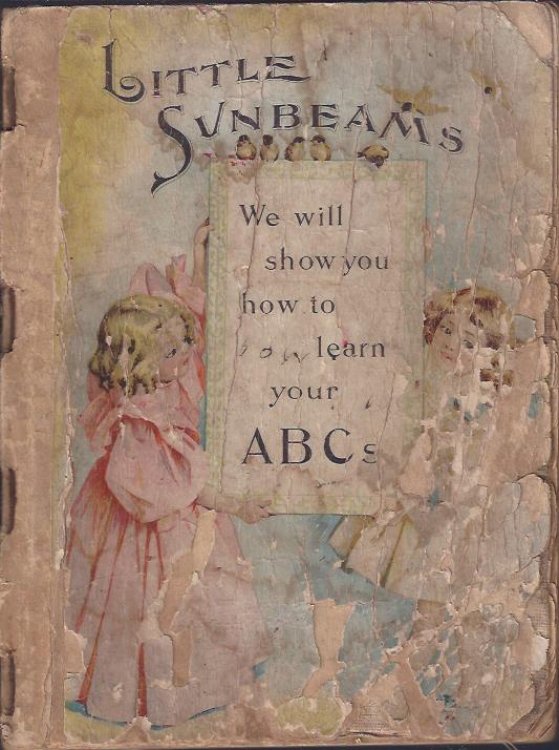 LITTLE
SUNBEAMS
We will
show you
how to
learn
your
ABCs